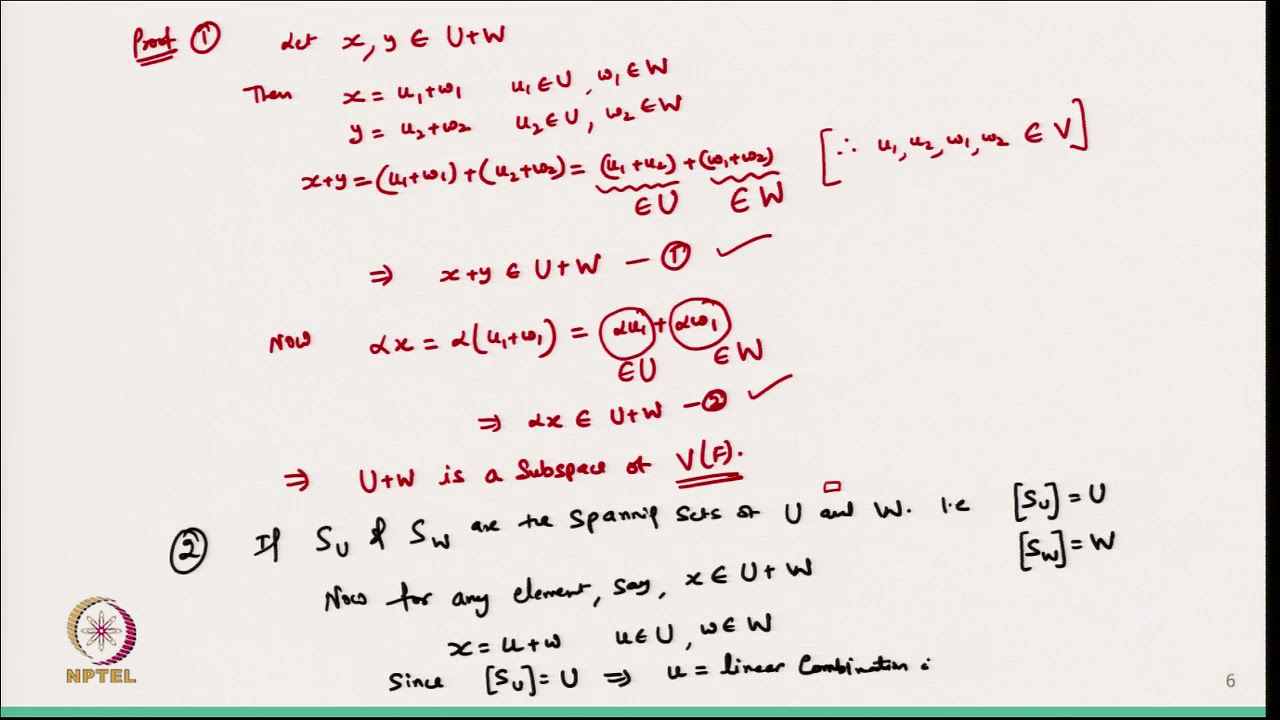 Proof ① Let x, y ∈ U+W
Then x = u₁+w₁ u₁∈U, w₁∈W
y = u₂+w₂ u₂∈U, w₂∈W
x+y = (u₁+w₁)+(u₂+w₂) = (u₁+u₂)+(w₁+w₂) [∴ u₁, u₂, w₁, w₂ ∈ V]
∈U ∈W
⇒ x+y ∈ U+W — ①
Now αx = α(u₁+w₁) = αu₁+αw₁
∈U ∈W
⇒ αx ∈ U+W — ②
⇒ U+W is a Subspace of V(F).
② If S_U & S_W are the Spanning Sets of U and W. i.e [S_U] = U
[S_W] = W
Now for any element, say, x ∈ U+W
x = u+w u∈U, w∈W
Since [S_U] = U ⇒ u = linear Combination
NPTEL
6